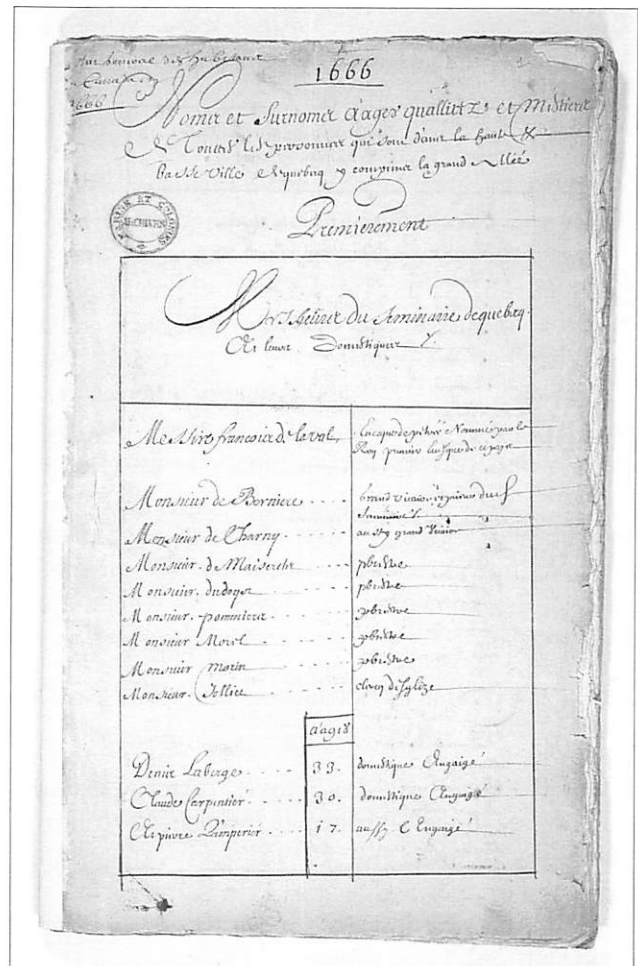 1666
1666
Nomes et Surnomes d'ages quallittz et Mestieres
De Toutes les personnes qui sont dans la haute &
basse Ville de quebecq y comprines la grand Allée
Premierement
MARINE ET COLONIES
ARCHIVES
Messieurs du Seminaire de quebecq
Et leurs Domestiques
Messire francois de laval, Evesque de petrée Nommé par le
Roy premier Evesque de ce pays
Monsieur de Berniere .... Grand Vicaire
Seminaire
Monsieur de Charny ..... aussy grand Vicaire
Monsieur de Maiserets .... pbestre
Monsieur dudoyt ..... pbestre
Monsieur pommiers ..... pbestre
Monsieur Morel ..... pbestre
Monsieur morin ..... pbestre
Monsieur Jolliet ..... clercq d'esglize
aages
Denis Laberge .... 33. domestique Engaigé
Claude Carpentier .... 30. domestique Engaigé
Et pierre .... 17. aussy Engaigé